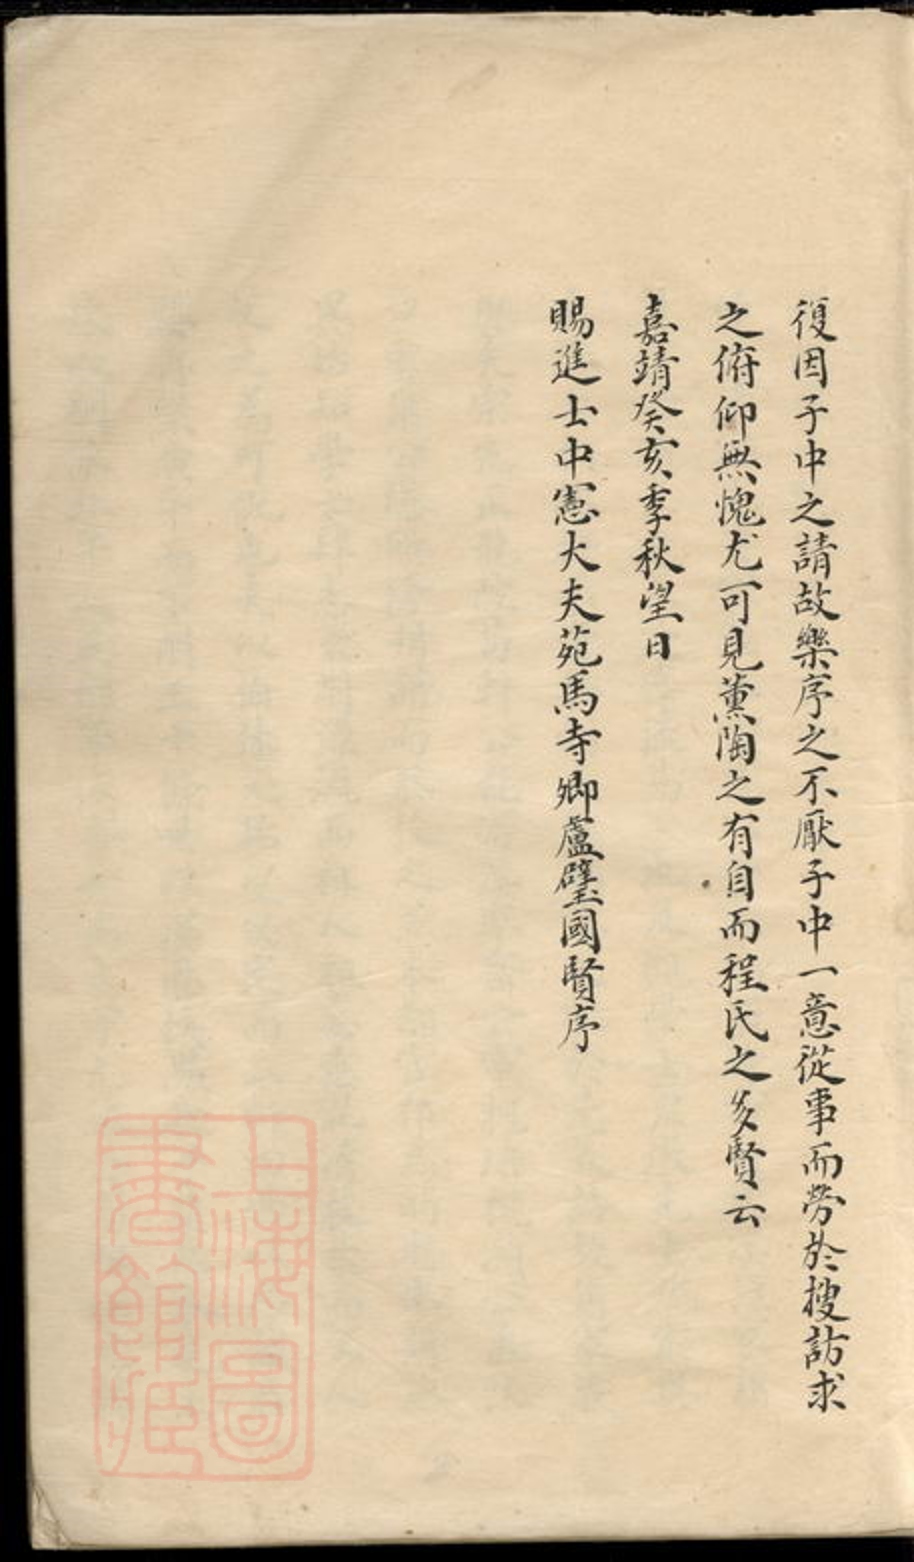 復因子中之請故樂序之不厭子中一意從事而勞於搜訪求
之俯仰無愧尤可見薰陶之有自而程氏之多賢云
嘉靖癸亥季秋望日
賜進士中憲大夫苑馬寺卿盧璧國賢序
上海圖
書館藏